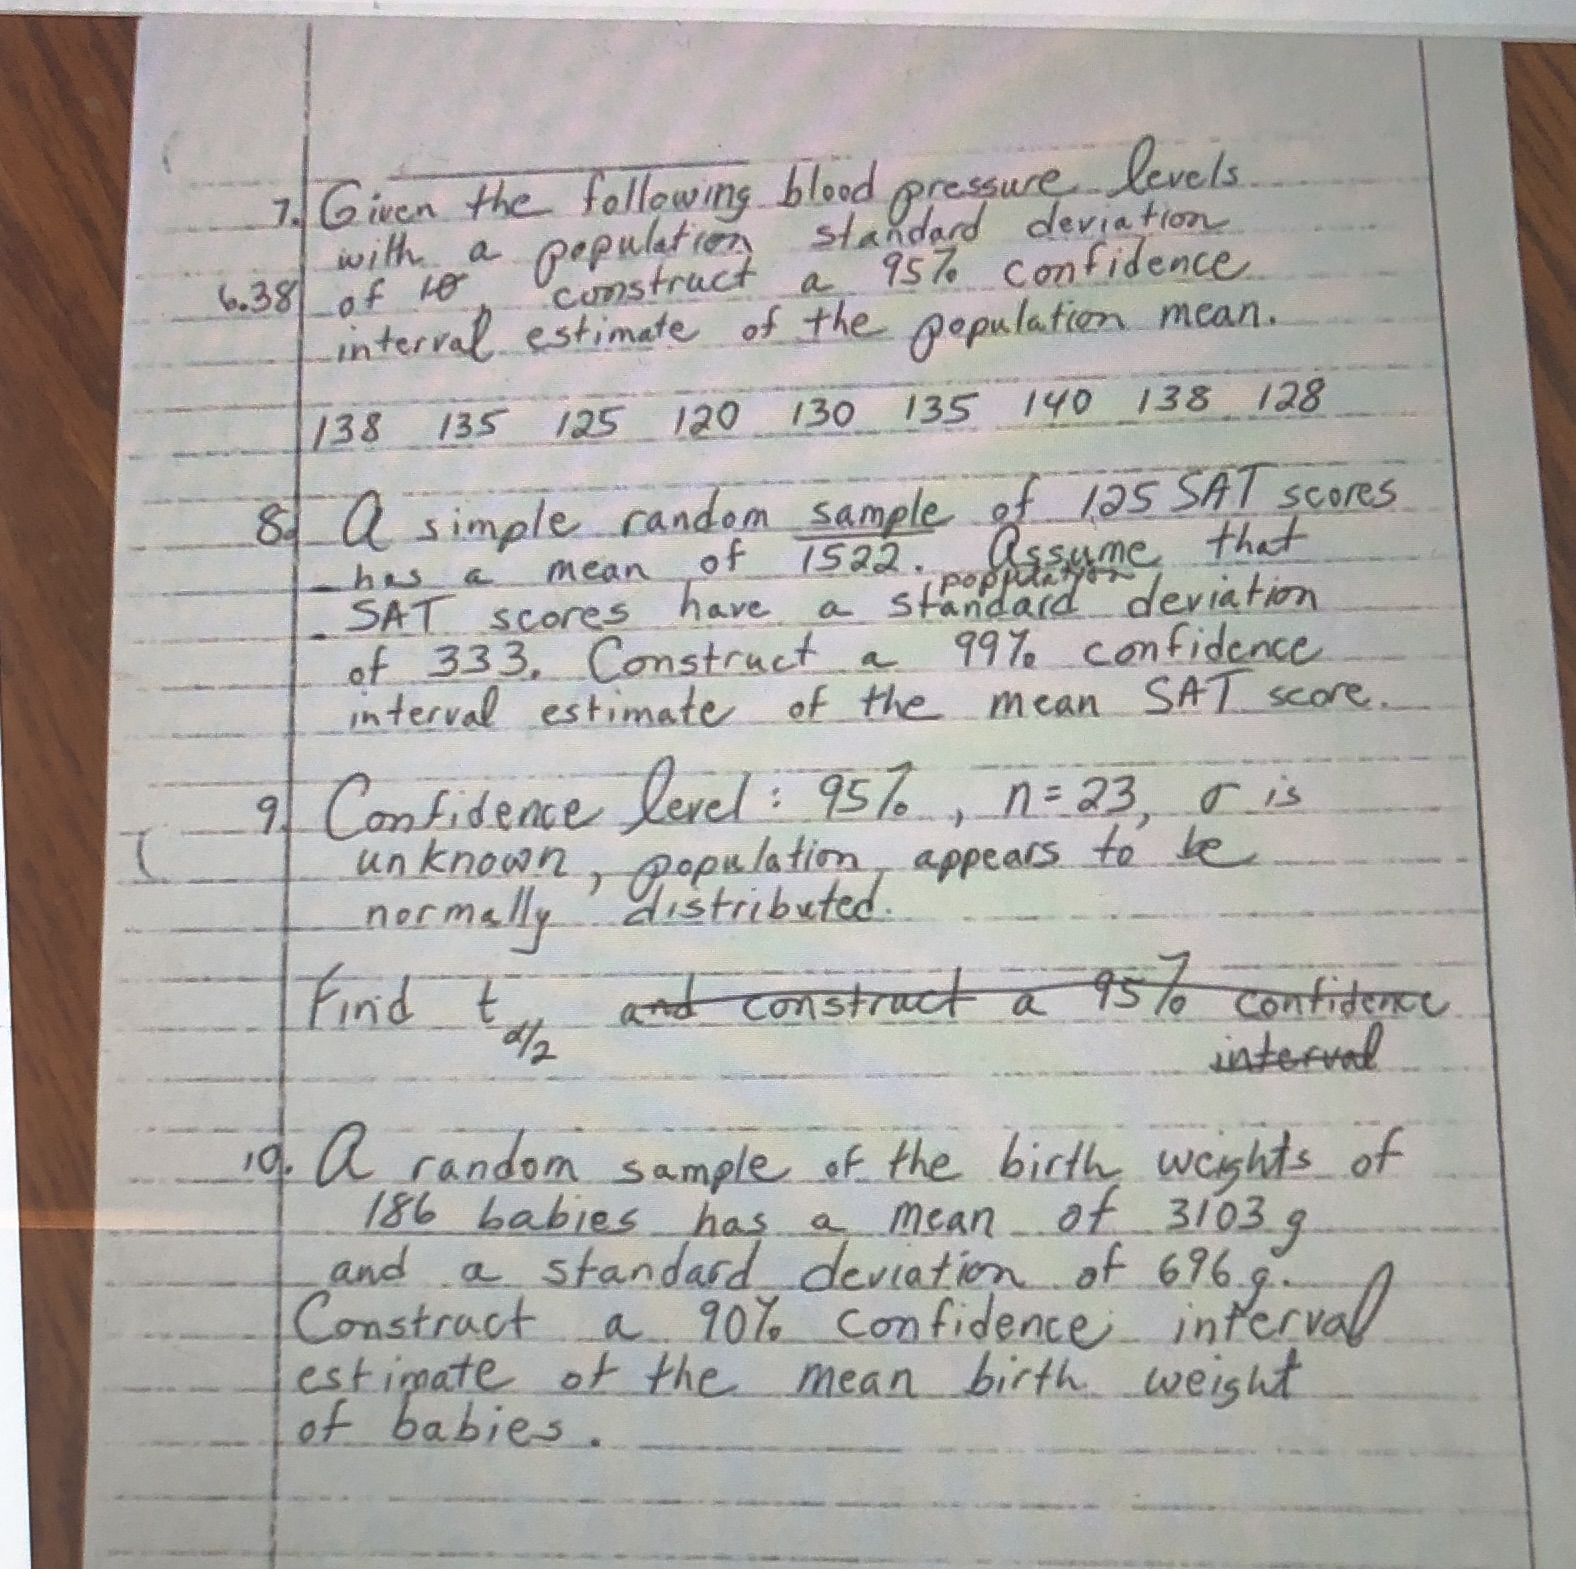 7. Given the following blood pressure levels
with a population standard deviation
6.38 of 10, construct a 95% confidence
interval estimate of the population mean.
138 135 125 120 130 135 140 138 128
8. A simple random sample of 125 SAT scores
has a mean of 1522. Assume that
population
SAT scores have a standard deviation
of 333. Construct a 99% confidence
interval estimate of the mean SAT score.
9. Confidence level: 95%, n=23, σ is
unknown, population appears to be
normally distributed.
Find t α/2 and construct a 95% confidence
interval
10. A random sample of the birth weights of
186 babies has a mean of 3103 g
and a standard deviation of 696 g.
Construct a 90% confidence interval
estimate of the mean birth weight
of babies.